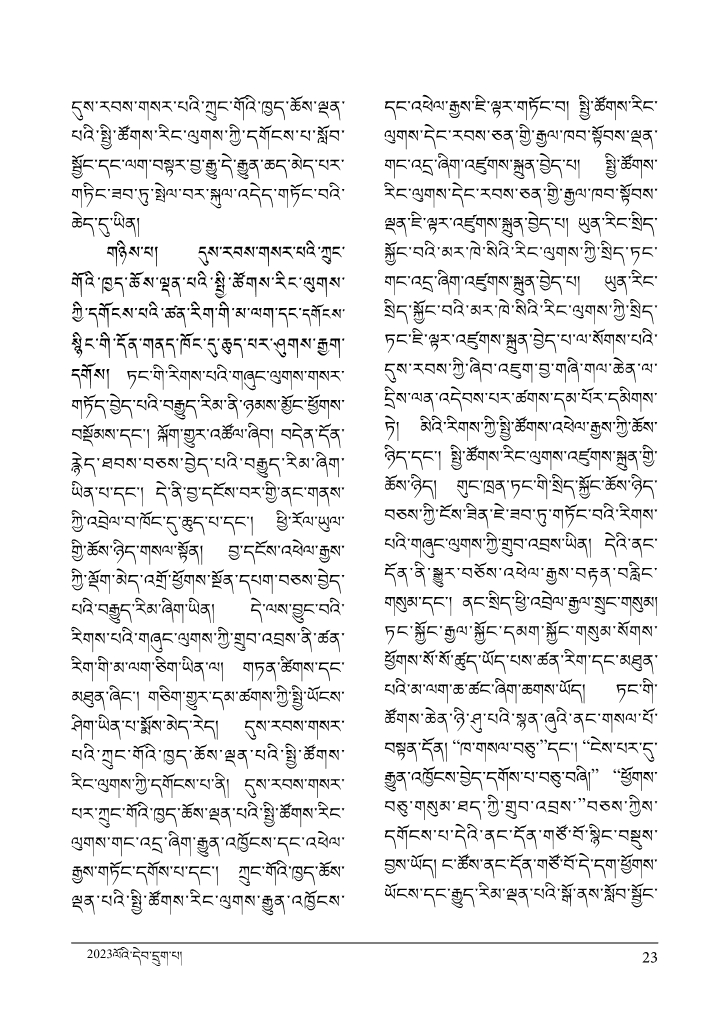 དུས་རབས་གསར་པའི་ཀྲུང་གོའི་ཁྱད་ཆོས་ལྡན་
པའི་སྤྱི་ཚོགས་རིང་ལུགས་ཀྱི་དགོངས་པ་སློབ་
སྦྱོང་དང་ལག་བསྟར་བྱ་རྒྱུ་དེ་རྒྱུན་ཆད་མེད་པར་
གཏིང་ཟབ་ཏུ་སྤེལ་བར་སྐུལ་འདེད་གཏོང་བའི་
ཆེད་དུ་ཡིན།
གཉིས་པ། དུས་རབས་གསར་པའི་ཀྲུང་
གོའི་ཁྱད་ཆོས་ལྡན་པའི་སྤྱི་ཚོགས་རིང་ལུགས་
ཀྱི་དགོངས་པའི་ཚན་རིག་གི་མ་ལག་དང་དགོངས་
སྙིང་གི་དོན་གནད་ཁོང་དུ་ཆུད་པར་ཤུགས་རྒྱག་
དགོས། ཏང་གི་རིགས་པའི་གཞུང་ལུགས་གསར་
གཏོད་བྱེད་པའི་བརྒྱུད་རིམ་ནི་ཉམས་མྱོང་ཕྱོགས་
བསྡོམས་དང་། ཀློག་གྱུར་འཚོལ་ཞིབ། བདེན་དོན་
རྙེད་ཐབས་བཅས་བྱེད་པའི་བརྒྱུད་རིམ་ཞིག་
ཡིན་པ་དང་། དེ་ནི་བྱ་དངོས་བར་གྱི་ནང་གནས་
ཀྱི་འབྲེལ་བ་ཁོང་དུ་ཆུད་པ་དང་། ཕྱི་རོལ་ཡུལ་
གྱི་ཆོས་ཉིད་གསལ་སྟོན། བྱ་དངོས་འཕེལ་རྒྱས་
ཀྱི་ལྡོག་མེད་འགྲོ་ཕྱོགས་སྔོན་དཔག་བཅས་བྱེད་
པའི་བརྒྱུད་རིམ་ཞིག་ཡིན། དེ་ལས་བྱུང་བའི་
རིགས་པའི་གཞུང་ལུགས་ཀྱི་གྲུབ་འབྲས་ནི་ཚན་
རིག་གི་མ་ལག་ཅིག་ཡིན་ལ། གཏན་ཚིགས་དང་
མཐུན་ཞིང་། གཅིག་གྱུར་དམ་ཚགས་ཀྱི་སྤྱི་ཡོངས་
ཤིག་ཡིན་པ་སྨོས་མེད་རེད། དུས་རབས་གསར་
པའི་ཀྲུང་གོའི་ཁྱད་ཆོས་ལྡན་པའི་སྤྱི་ཚོགས་
རིང་ལུགས་ཀྱི་དགོངས་པ་ནི། དུས་རབས་གསར་
པར་ཀྲུང་གོའི་ཁྱད་ཆོས་ལྡན་པའི་སྤྱི་ཚོགས་རིང་
ལུགས་གང་འདྲ་ཞིག་རྒྱུན་འཁྱོངས་དང་འཕེལ་
རྒྱས་གཏོང་དགོས་པ་དང་། ཀྲུང་གོའི་ཁྱད་ཆོས་
ལྡན་པའི་སྤྱི་ཚོགས་རིང་ལུགས་རྒྱུན་འཁྱོངས་
དང་འཕེལ་རྒྱས་ཇི་ལྟར་གཏོང་བ། སྤྱི་ཚོགས་རིང་
ལུགས་དེང་རབས་ཅན་གྱི་རྒྱལ་ཁབ་སྟོབས་ལྡན་
གང་འདྲ་ཞིག་འཛུགས་སྐྲུན་བྱེད་པ། སྤྱི་ཚོགས་
རིང་ལུགས་དེང་རབས་ཅན་གྱི་རྒྱལ་ཁབ་སྟོབས་
ལྡན་ཇི་ལྟར་འཛུགས་སྐྲུན་བྱེད་པ། ཡུན་རིང་སྲིད་
སྐྱོང་བའི་མར་ཁེ་སིའི་རིང་ལུགས་ཀྱི་སྲིད་ཏང་
གང་འདྲ་ཞིག་འཛུགས་སྐྲུན་བྱེད་པ། ཡུན་རིང་
སྲིད་སྐྱོང་བའི་མར་ཁེ་སིའི་རིང་ལུགས་ཀྱི་སྲིད་
ཏང་ཇི་ལྟར་འཛུགས་སྐྲུན་བྱེད་པ་ལ་སོགས་པའི་
དུས་རབས་ཀྱི་ཞིབ་འཇུག་བྱ་གཞི་གལ་ཆེན་ལ་
དྲིས་ལན་འདེབས་པར་ཚགས་དམ་པོར་དམིགས་
ཏེ། མིའི་རིགས་ཀྱི་སྤྱི་ཚོགས་འཕེལ་རྒྱས་ཀྱི་ཆོས་
ཉིད་དང་། སྤྱི་ཚོགས་རིང་ལུགས་འཛུགས་སྐྲུན་གྱི་
ཆོས་ཉིད། གུང་ཁྲན་ཏང་གི་སྲིད་སྐྱོང་ཆོས་ཉིད་
བཅས་ཀྱི་ངོས་ཟིན་ཇེ་ཟབ་ཏུ་གཏོང་བའི་རིགས་
པའི་གཞུང་ལུགས་ཀྱི་གྲུབ་འབྲས་ཡིན། དེའི་ནང་
དོན་ནི་སྒྱུར་བཅོས་འཕེལ་རྒྱས་བརྟན་བརླིང་
གསུམ་དང་། ནང་སྲིད་ཕྱི་འབྲེལ་རྒྱལ་སྲུང་གསུམ།
ཏང་སྐྱོང་རྒྱལ་སྐྱོང་དམག་སྐྱོང་གསུམ་སོགས་
ཕྱོགས་སོ་སོ་ཚུད་ཡོད་པས་ཚན་རིག་དང་མཐུན་
པའི་མ་ལག་ཆ་ཚང་ཞིག་ཆགས་ཡོད། ཏང་གི་
ཚོགས་ཆེན་ཉི་ཤུ་པའི་སྙན་ཞུའི་ནང་གསལ་པོ་
བསྟན་དོན། “ཁ་གསལ་བཅུ་”དང་། “ངེས་པར་དུ་
རྒྱུན་འཁྱོངས་བྱེད་དགོས་པ་བཅུ་བཞི།” “ཕྱོགས་
བཅུ་གསུམ་ཐད་ཀྱི་གྲུབ་འབྲས་”བཅས་ཀྱིས་
དགོངས་པ་དེའི་ནང་དོན་གཙོ་བོ་སྙིང་བསྡུས་
བྱས་ཡོད། ང་ཚོས་ནང་དོན་གཙོ་བོ་དེ་དག་ཕྱོགས་
ཡོངས་དང་རྒྱུད་རིམ་ལྡན་པའི་སྒོ་ནས་སློབ་སྦྱོང་
2023ལོའི་དེབ་དྲུག་པ།
23